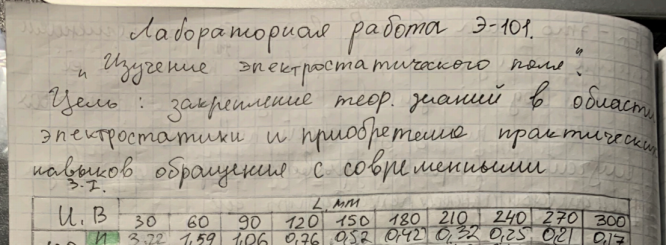 Лабораторная работа Э-101.
"Изучение электростатического поля".
Цель: закрепление теор. знаний в области
электростатики и приобретение практических
навыков обращения с современными
З.I.
U, В L, мм
30 60 90 120 150 180 210 240 270 300
И 3,22 1,59 1,06 0,76 0,57 0,42 0,32 0,25 0,21 0,17